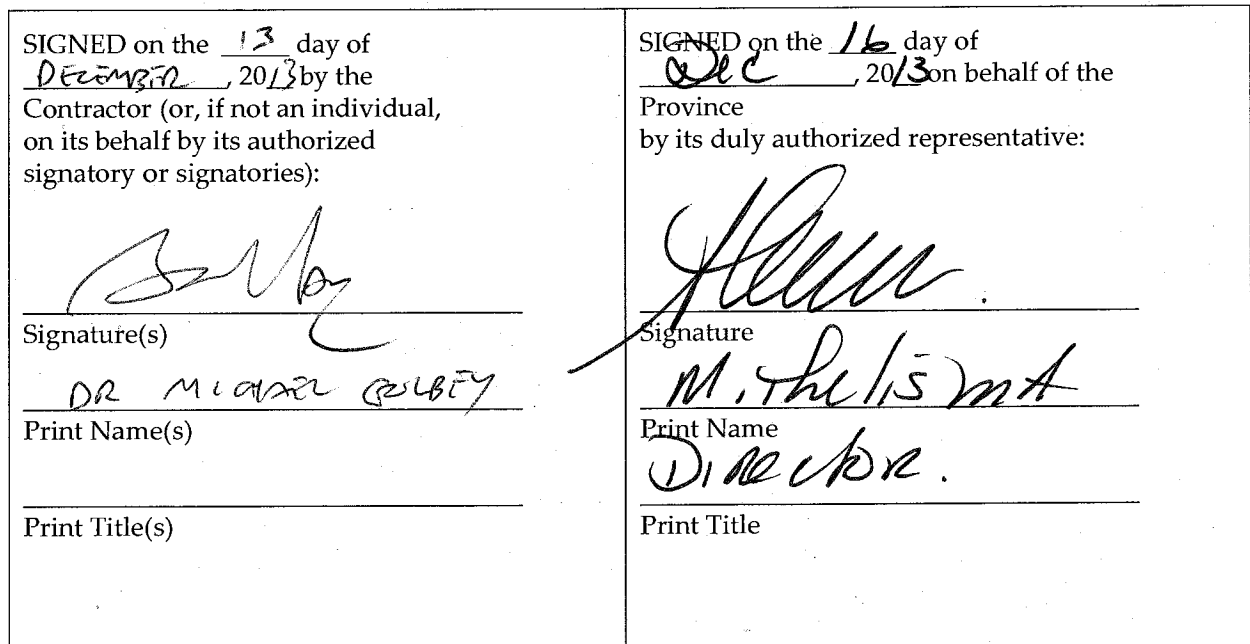 SIGNED on the 13 day of
DECEMBER, 2013 by the
Contractor (or, if not an individual,
on its behalf by its authorized
signatory or signatories):
Signature(s)
DR MICHAEL
Print Name(s)
Print Title(s)
SIGNED on the 16 day of
Dec, 2013 on behalf of the
Province
by its duly authorized representative:
Signature
M. Thelisma
Print Name
Director.
Print Title